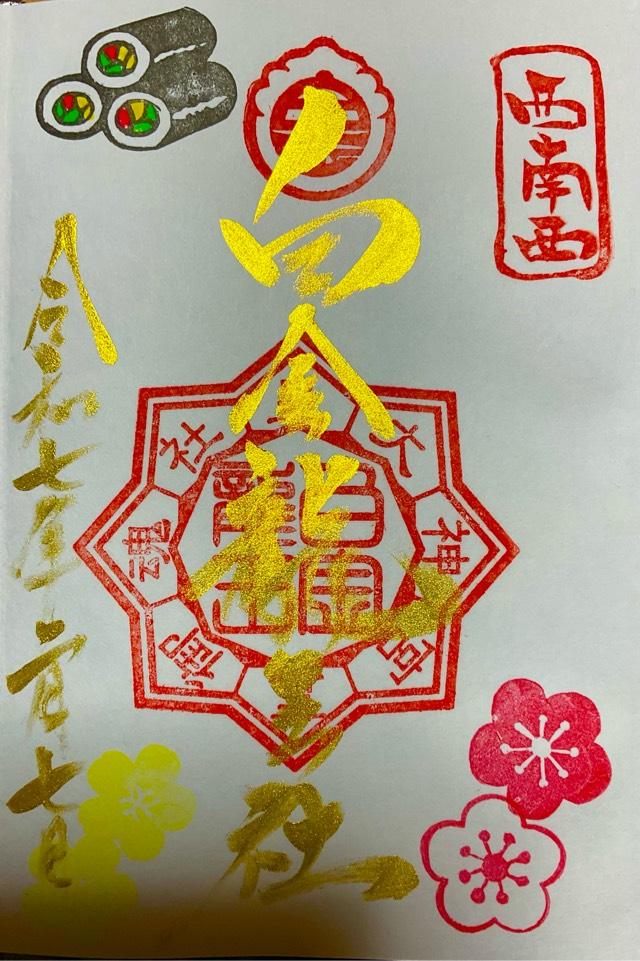 西南西
白金龍王社
大神宮
御魂社
令和七年二月七日